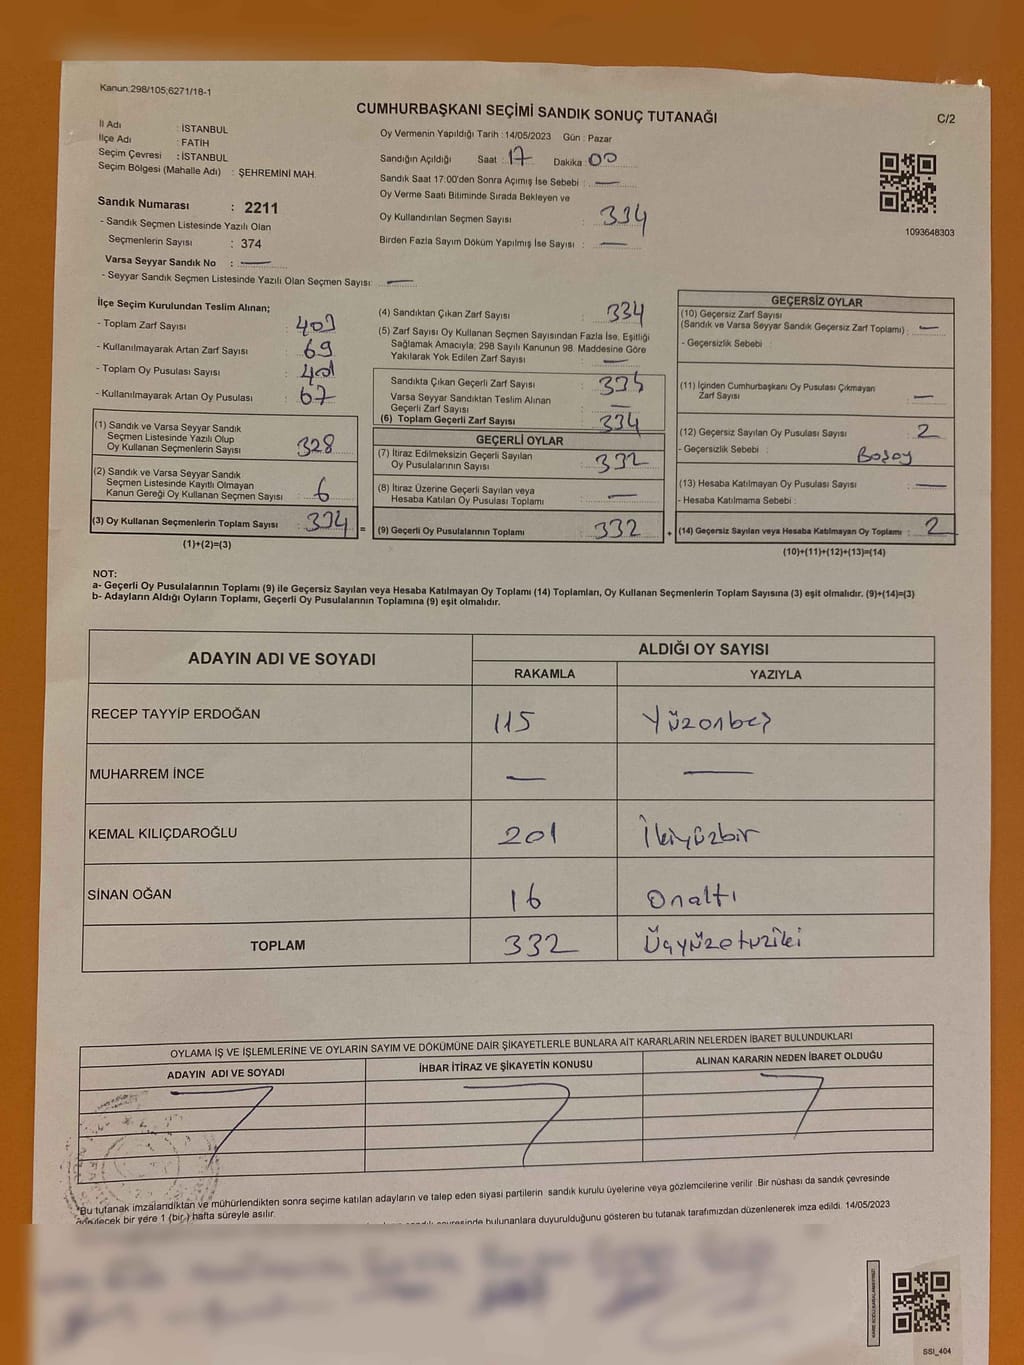 Kanun:298/105;6271/18-1
CUMHURBAŞKANI SEÇİMİ SANDIK SONUÇ TUTANAĞI
C/2
İl Adı : İSTANBUL
İlçe Adı : FATİH
Seçim Çevresi : İSTANBUL
Seçim Bölgesi (Mahalle Adı) : ŞEHREMİNİ MAH.
Sandık Numarası : 2211
- Sandık Seçmen Listesinde Yazılı Olan
Seçmenlerin Sayısı : 374
Varsa Seyyar Sandık No : —
- Seyyar Sandık Seçmen Listesinde Yazılı Olan Seçmen Sayısı: —
Oy Vermenin Yapıldığı Tarih : 14/05/2023 Gün : Pazar
Sandığın Açıldığı Saat : 17 Dakika : 00
Sandık Saat 17:00'den Sonra Açımış İse Sebebi : —
Oy Verme Saati Bitiminde Sırada Bekleyen ve
Oy Kullandırılan Seçmen Sayısı : 334
Birden Fazla Sayım Döküm Yapılmış İse Sayısı : —
1093648303
İlçe Seçim Kurulundan Teslim Alınan;
- Toplam Zarf Sayısı : 403
- Kullanılmayarak Artan Zarf Sayısı : 69
- Toplam Oy Pusulası Sayısı : 401
- Kullanılmayarak Artan Oy Pusulası : 67
(1) Sandık ve Varsa Seyyar Sandık
Seçmen Listesinde Yazılı Olup
Oy Kullanan Seçmenlerin Sayısı : 328
(2) Sandık ve Varsa Seyyar Sandık
Seçmen Listesinde Kayıtlı Olmayan
Kanun Gereği Oy Kullanan Seçmen Sayısı : 6
(3) Oy Kullanan Seçmenlerin Toplam Sayısı : 334 =
(1)+(2)=(3)
(4) Sandıktan Çıkan Zarf Sayısı : 334
(5) Zarf Sayısı Oy Kullanan Seçmen Sayısından Fazla İse, Eşitliği
Sağlamak Amacıyla; 298 Sayılı Kanunun 98. Maddesine Göre
Yakılarak Yok Edilen Zarf Sayısı : —
Sandıkta Çıkan Geçerli Zarf Sayısı : 334
Varsa Seyyar Sandıktan Teslim Alınan
Geçerli Zarf Sayısı : —
(6) Toplam Geçerli Zarf Sayısı : 334
GEÇERLİ OYLAR
(7) İtiraz Edilmeksizin Geçerli Sayılan
Oy Pusulalarının Sayısı : 332
(8) İtiraz Üzerine Geçerli Sayılan veya
Hesaba Katılan Oy Pusulası Toplamı : —
(9) Geçerli Oy Pusulalarının Toplamı : 332 +
GEÇERSİZ OYLAR
(10) Geçersiz Zarf Sayısı
(Sandık ve Varsa Seyyar Sandık Geçersiz Zarf Toplamı) : —
- Geçersizlik Sebebi :
(11) İçinden Cumhurbaşkanı Oy Pusulası Çıkmayan
Zarf Sayısı : —
(12) Geçersiz Sayılan Oy Pusulası Sayısı : 2
- Geçersizlik Sebebi :
(13) Hesaba Katılmayan Oy Pusulası Sayısı : —
- Hesaba Katılmama Sebebi :
(14) Geçersiz Sayılan veya Hesaba Katılmayan Oy Toplamı : 2
(10)+(11)+(12)+(13)=(14)
NOT:
a- Geçerli Oy Pusulalarının Toplamı (9) ile Geçersiz Sayılan veya Hesaba Katılmayan Oy Toplamı (14) Toplamları, Oy Kullanan Seçmenlerin Toplam Sayısına (3) eşit olmalıdır. (9)+(14)=(3)
b- Adayların Aldığı Oyların Toplamı, Geçerli Oy Pusulalarının Toplamına (9) eşit olmalıdır.
ADAYIN ADI VE SOYADI
ALDIĞI OY SAYISI
RAKAMLA YAZIYLA
RECEP TAYYİP ERDOĞAN 115 Yüzonbeş
MUHARREM İNCE — —
KEMAL KILIÇDAROĞLU 201 İkiyüzbir
SİNAN OĞAN 16 Onaltı
TOPLAM 332 Üçyüzotuziki
OYLAMA İŞ VE İŞLEMLERİNE VE OYLARIN SAYIM VE DÖKÜMÜNE DAİR ŞİKAYETLERLE BUNLARA AİT KARARLARIN NELERDEN İBARET BULUNDUKLARI
ADAYIN ADI VE SOYADI İHBAR İTİRAZ VE ŞİKAYETİN KONUSU ALINAN KARARIN NEDEN İBARET OLDUĞU
*Bu tutanak imzalandıktan ve mühürlendikten sonra seçime katılan adayların ve talep eden siyasi partilerin sandık kurulu üyelerine veya gözlemcilerine verilir. Bir nüshası da sandık çevresinde
bir yere 1 (bir) hafta süreyle asılır.
bulunanlara duyurulduğunu gösteren bu tutanak tarafımızdan düzenlenerek imza edildi. 14/05/2023
SSI_404